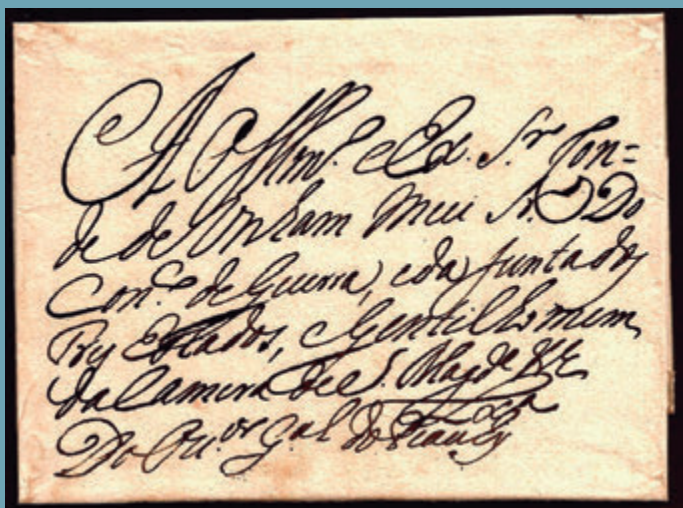 Ao Illmo. e Ex. Sre Con=
de de Unham meu Sr. Do
Conso. de Guerra, e da junta dos
Trez Estados, Gentil homem
da Camera de S. Magde. &c
Lxa
Do Ouor. gal do Piauhy